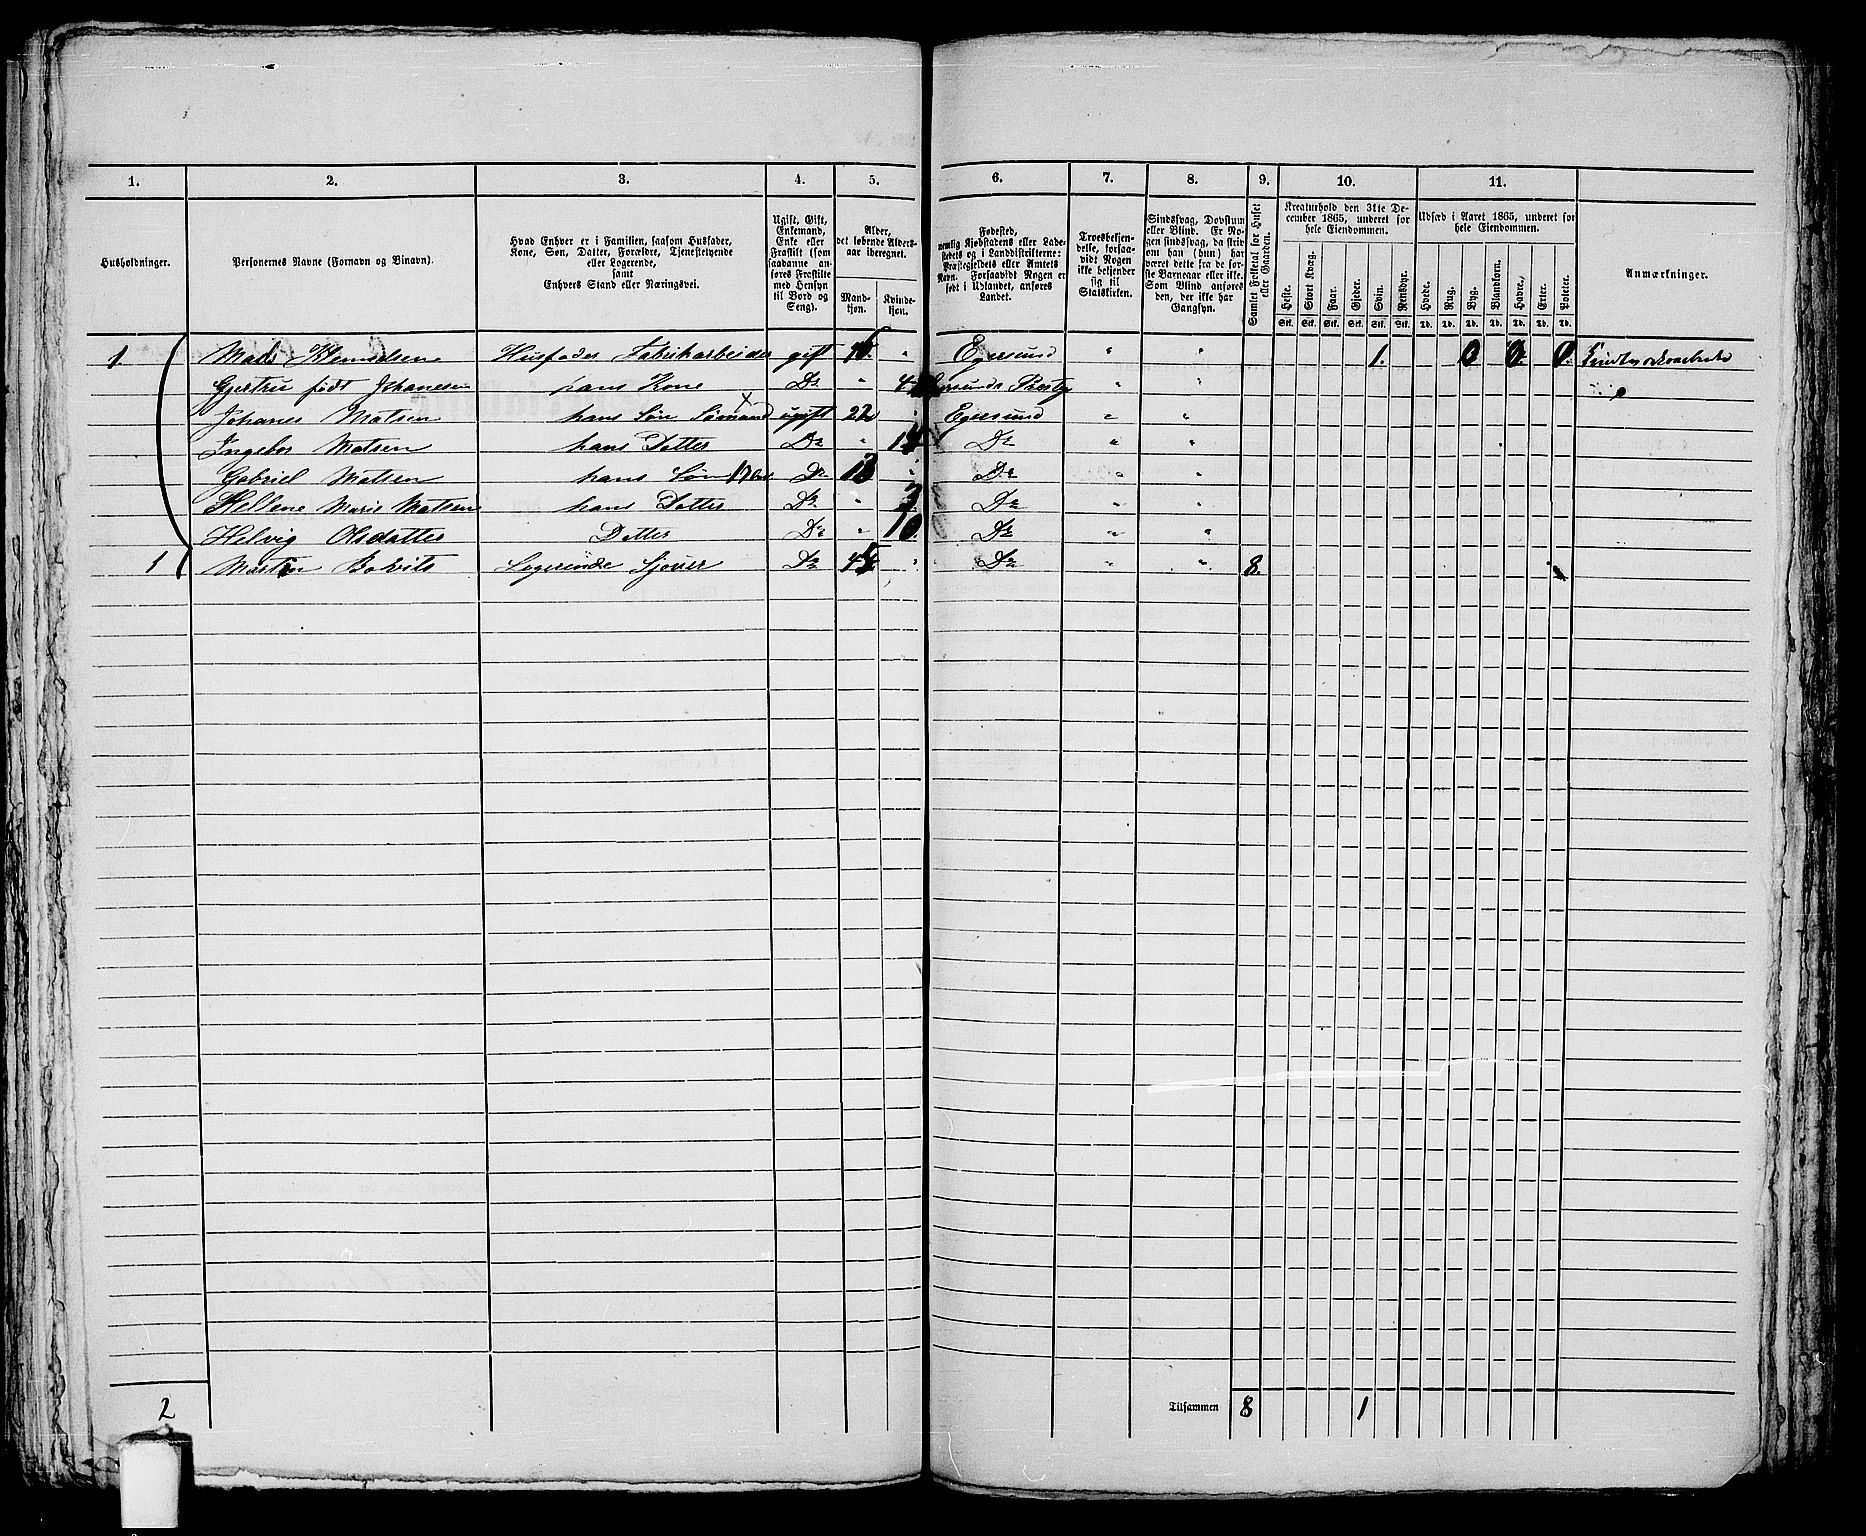 1. 2. 3. 4. 5. 6. 7. 8. 9. 10. 11.
Husholdninger.
Personernes Navne (Fornavn og Binavn).
Hvad Enhver er i Familien, saasom Husfader,
Kone, Søn, Datter, Forældre, Tjenestetyende
eller Logerende,
samt
Enhvers Stand eller Næringsvei.
Ugift, Gift,
Enkemand,
Enke eller
Fraskilt (som
saadanne an-
føres Fraskilte
med Hensyn
til Bord og
Seng).
Alder,
det løbende Alders-
aar iberegnet.
Mand-
kjøn.
Kvinde-
kjøn.
Fødested,
nemlig Kjøbstadens eller Lade-
stedets og i Landdistrikterne:
Præstegjeldets eller Amtets
Navn. Forsaavidt Nogen er
født i Udlandet, anføres
Landet.
Troesbekjen-
delse, forsaa-
vidt Nogen
ikke bekjender
sig til
Statskirken.
Sindssvag, Døvstum
eller Blind. Er No-
gen sindssvag, da skriv
om han (hun) har
været dette fra de før-
ste Barneaar eller ikke.
Som Blind anføres
den, der ikke har
Gangsyn.
Samlet Folketal for Huset
eller Gaarden.
Kreaturhold den 31te De-
cember 1865, underet for
hele Eiendommen.
Heste. Stort Kvæg. Faar. Gjeder. Svin. Rensdyr.
Stk. Stk. Stk. Stk. Stk. Stk.
Udsæd i Aaret 1865, underet for
hele Eiendommen.
Hvede. Rug. Byg. Blandkorn. Havre. Erter. Poteter.
Td. Td. Td. Td. Td. Td. Td.
Anmærkninger.
1 Mads Husfader Fabrikarbeider gift " Egersund " " 1. 0 0 0
Gjertru født Johanesen hans Kone Do " " "
Johanes Matsen hans Søn Sømand ugift 22 " Egersund " "
Ingebor Matsen hans Datter Do " 14 Do " "
Gabriel Matsen hans Søn Do 13 " Do " "
Hellene Marie Matsen hans Datter Do " 3 Do " "
Helvig Olsdatter Datter Do " 10 Do " "
1 Logerende Sjouer Do " Do " " 8.
2 Tilsammen 8 1